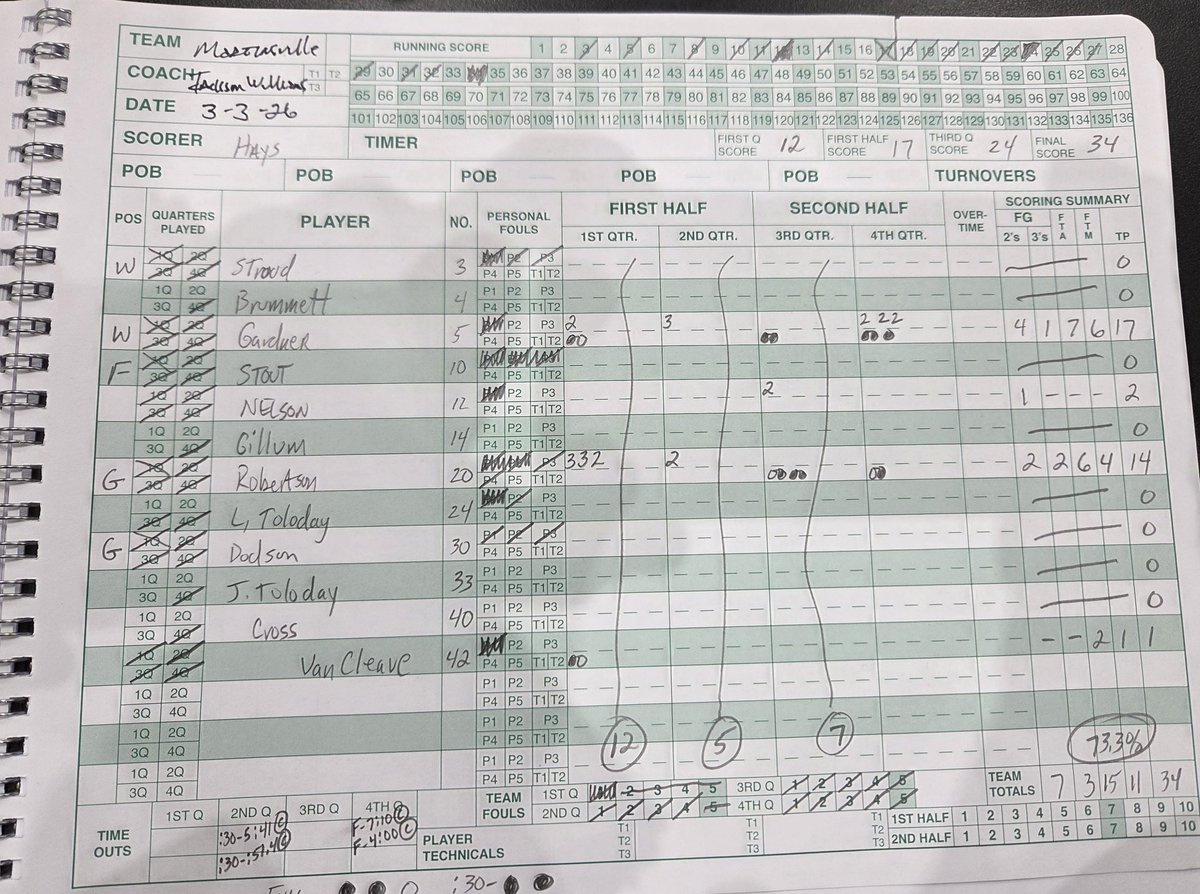 TEAM Martinsville RUNNING SCORE 1 2 3 4 5 6 7 8 9 10 11 12 13 14 15 16 17 18 19 20 21 22 23 24 25 26 27 28
COACH Jackson Williams T1 T2 T3 29 30 31 32 33 34 35 36 37 38 39 40 41 42 43 44 45 46 47 48 49 50 51 52 53 54 55 56 57 58 59 60 61 62 63 64
65 66 67 68 69 70 71 72 73 74 75 76 77 78 79 80 81 82 83 84 85 86 87 88 89 90 91 92 93 94 95 96 97 98 99 100
DATE 3-3-26 101 102 103 104 105 106 107 108 109 110 111 112 113 114 115 116 117 118 119 120 121 122 123 124 125 126 127 128 129 130 131 132 133 134 135 136
SCORER HAYS TIMER FIRST Q SCORE 12 FIRST HALF SCORE 17 THIRD Q SCORE 24 FINAL SCORE 34
POB POB POB POB POB TURNOVERS
POS QUARTERS PLAYED PLAYER NO. PERSONAL FOULS FIRST HALF SECOND HALF OVER-TIME SCORING SUMMARY
1ST QTR. 2ND QTR. 3RD QTR. 4TH QTR. FG 2's 3's FTA FTM TP
W 1Q 2Q 3Q 4Q Stroud 3 P1 P2 P3 P4 P5 T1 T2 0
1Q 2Q 3Q 4Q Brummett 4 P1 P2 P3 P4 P5 T1 T2 0
W 1Q 2Q 3Q 4Q Gardner 5 P1 P2 P3 P4 P5 T1 T2 2 3 2 2 2 4 1 7 6 17
F 1Q 2Q 3Q 4Q STOUT 10 P1 P2 P3 P4 P5 T1 T2 0
1Q 2Q 3Q 4Q NELSON 12 P1 P2 P3 P4 P5 T1 T2 2 1 - - 2
1Q 2Q 3Q 4Q Gillum 14 P1 P2 P3 P4 P5 T1 T2 0
G 1Q 2Q 3Q 4Q Robertson 20 P1 P2 P3 P4 P5 T1 T2 3 3 2 2 2 2 6 4 14
1Q 2Q 3Q 4Q L, Toloday 24 P1 P2 P3 P4 P5 T1 T2 0
G 1Q 2Q 3Q 4Q Dodson 30 P1 P2 P3 P4 P5 T1 T2 0
1Q 2Q 3Q 4Q J. Toloday 33 P1 P2 P3 P4 P5 T1 T2 0
1Q 2Q 3Q 4Q Cross 40 P1 P2 P3 P4 P5 T1 T2 0
1Q 2Q 3Q 4Q Van Cleave 42 P1 P2 P3 P4 P5 T1 T2 - - 2 1 1
1Q 2Q 3Q 4Q P1 P2 P3 P4 P5 T1 T2
1Q 2Q 3Q 4Q P1 P2 P3 P4 P5 T1 T2 12 5 7 73.3%
1Q 2Q 3Q 4Q P1 P2 P3 P4 P5 T1 T2
TEAM FOULS 1ST Q 1 2 3 4 5 3RD Q 1 2 3 4 5 TEAM TOTALS 7 3 15 11 34
2ND Q 1 2 3 4 5 4TH Q 1 2 3 4 5
TIME OUTS 1ST Q 2ND Q 3RD Q 4TH Q
:30-5:41 C F-7:10 C
:30-:57.4 C F-4:00 C
PLAYER TECHNICALS T1 T2 T3 T1 T2 T3 T1 T2 T3 1ST HALF 1 2 3 4 5 6 7 8 9 10
2ND HALF 1 2 3 4 5 6 7 8 9 10
:30-